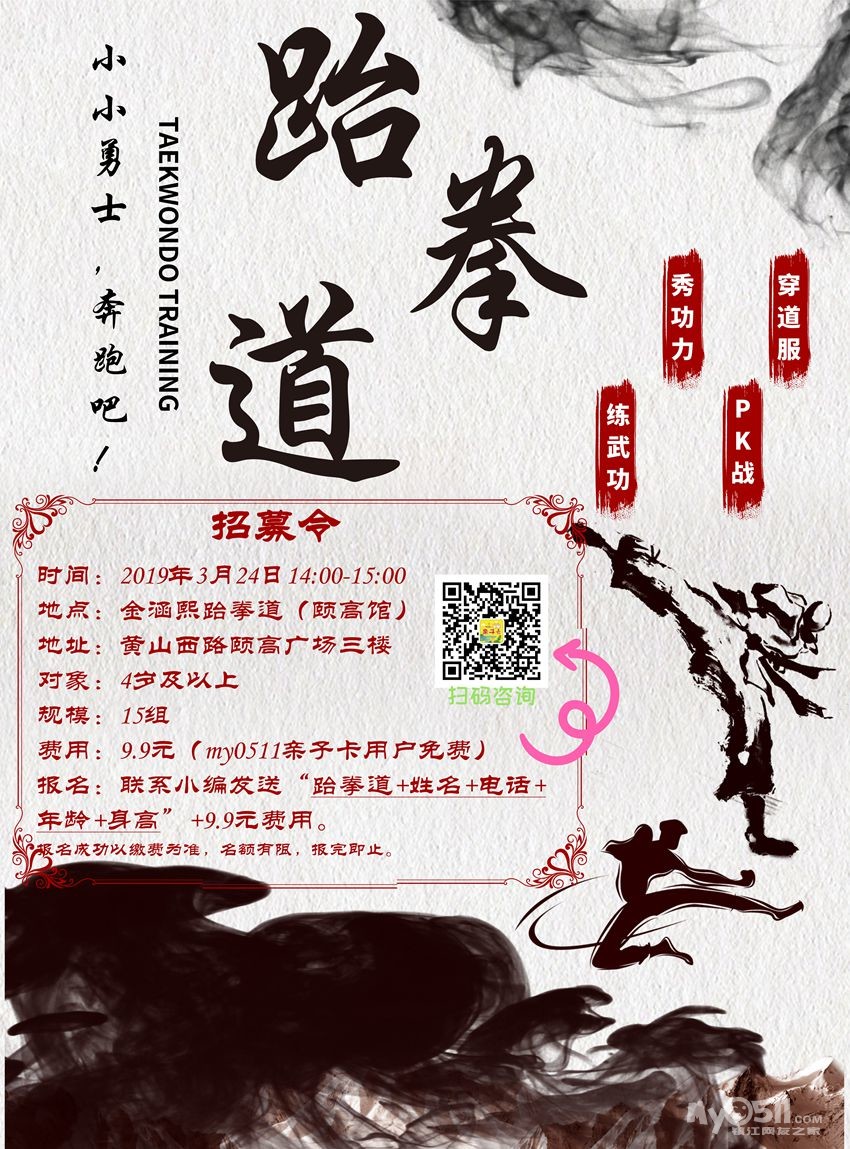 跆拳道
小小勇士，奔跑吧！
TAEKWONDO TRAINING
穿道服
秀功力
PK战
练武功
招募令
时间：2019年3月24日14:00-15:00
地点：金涵熙跆拳道（颐高馆）
地址：黄山西路颐高广场三楼
对象：4岁及以上
规模：15组
费用：9.9元（my0511亲子卡用户免费）
报名：联系小编发送“跆拳道+姓名+电话+
年龄+身高”+9.9元费用。
报名成功以缴费为准，名额有限，报完即止。
扫码咨询
my0511.COM
镇江网友之家